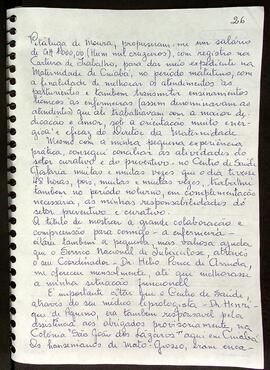 26
Pitaluga de Moura, propuseram-me um salário
de Cr$ 1.000,00 (Hum mil cruzeiros), com registro na
Carteira de Trabalho, para dar meio expediente na
Maternidade de Cuiabá, no período matutino, com
a finalidade de melhorar os atendimentos às
parturientes e também transmitir ensinamentos
técnicos às enfermeiras (assim denominavam as
atendentes) que ali trabalhavam com a maior de-
dicação e amor, sob a orientação muito enér-
gica e eficaz do Diretor da Maternidade.
Mesmo com a minha pequena experiência
prática, consegui conciliar as atividades do
setor curativo e do preventivo - no Centro de Saúde
Gostaria muitas e muitas vezes que o dia tivesse
48 horas, pois, muitas e muitas vezes, trabalhei
também no período noturno, em complementação
necessária, às minhas responsabilidades do
setor preventivo e curativo.
A título de mostrar a grande colaboração e
compreensão para comigo - a enfermeira -
citarei também a pequena, mas valiosa ajuda
que o Serviço Nacional de Tuberculose, através
o seu Coordenador - Dr. Hélio Ponce de Arruda,
me ofereceu mensalmente, até que melhorasse
a minha situação funcional.
É importante citar que o Centro de Saúde,
através do seu médico leprologista - Dr. Henri-
que de Aquino, era também responsável pela
assistência aos obrigados provisoriamente, na
Colônia "São João dos Lázaros" aqui em Cuiabá
Os hansenianos de Mato-Grosso, eram enca-